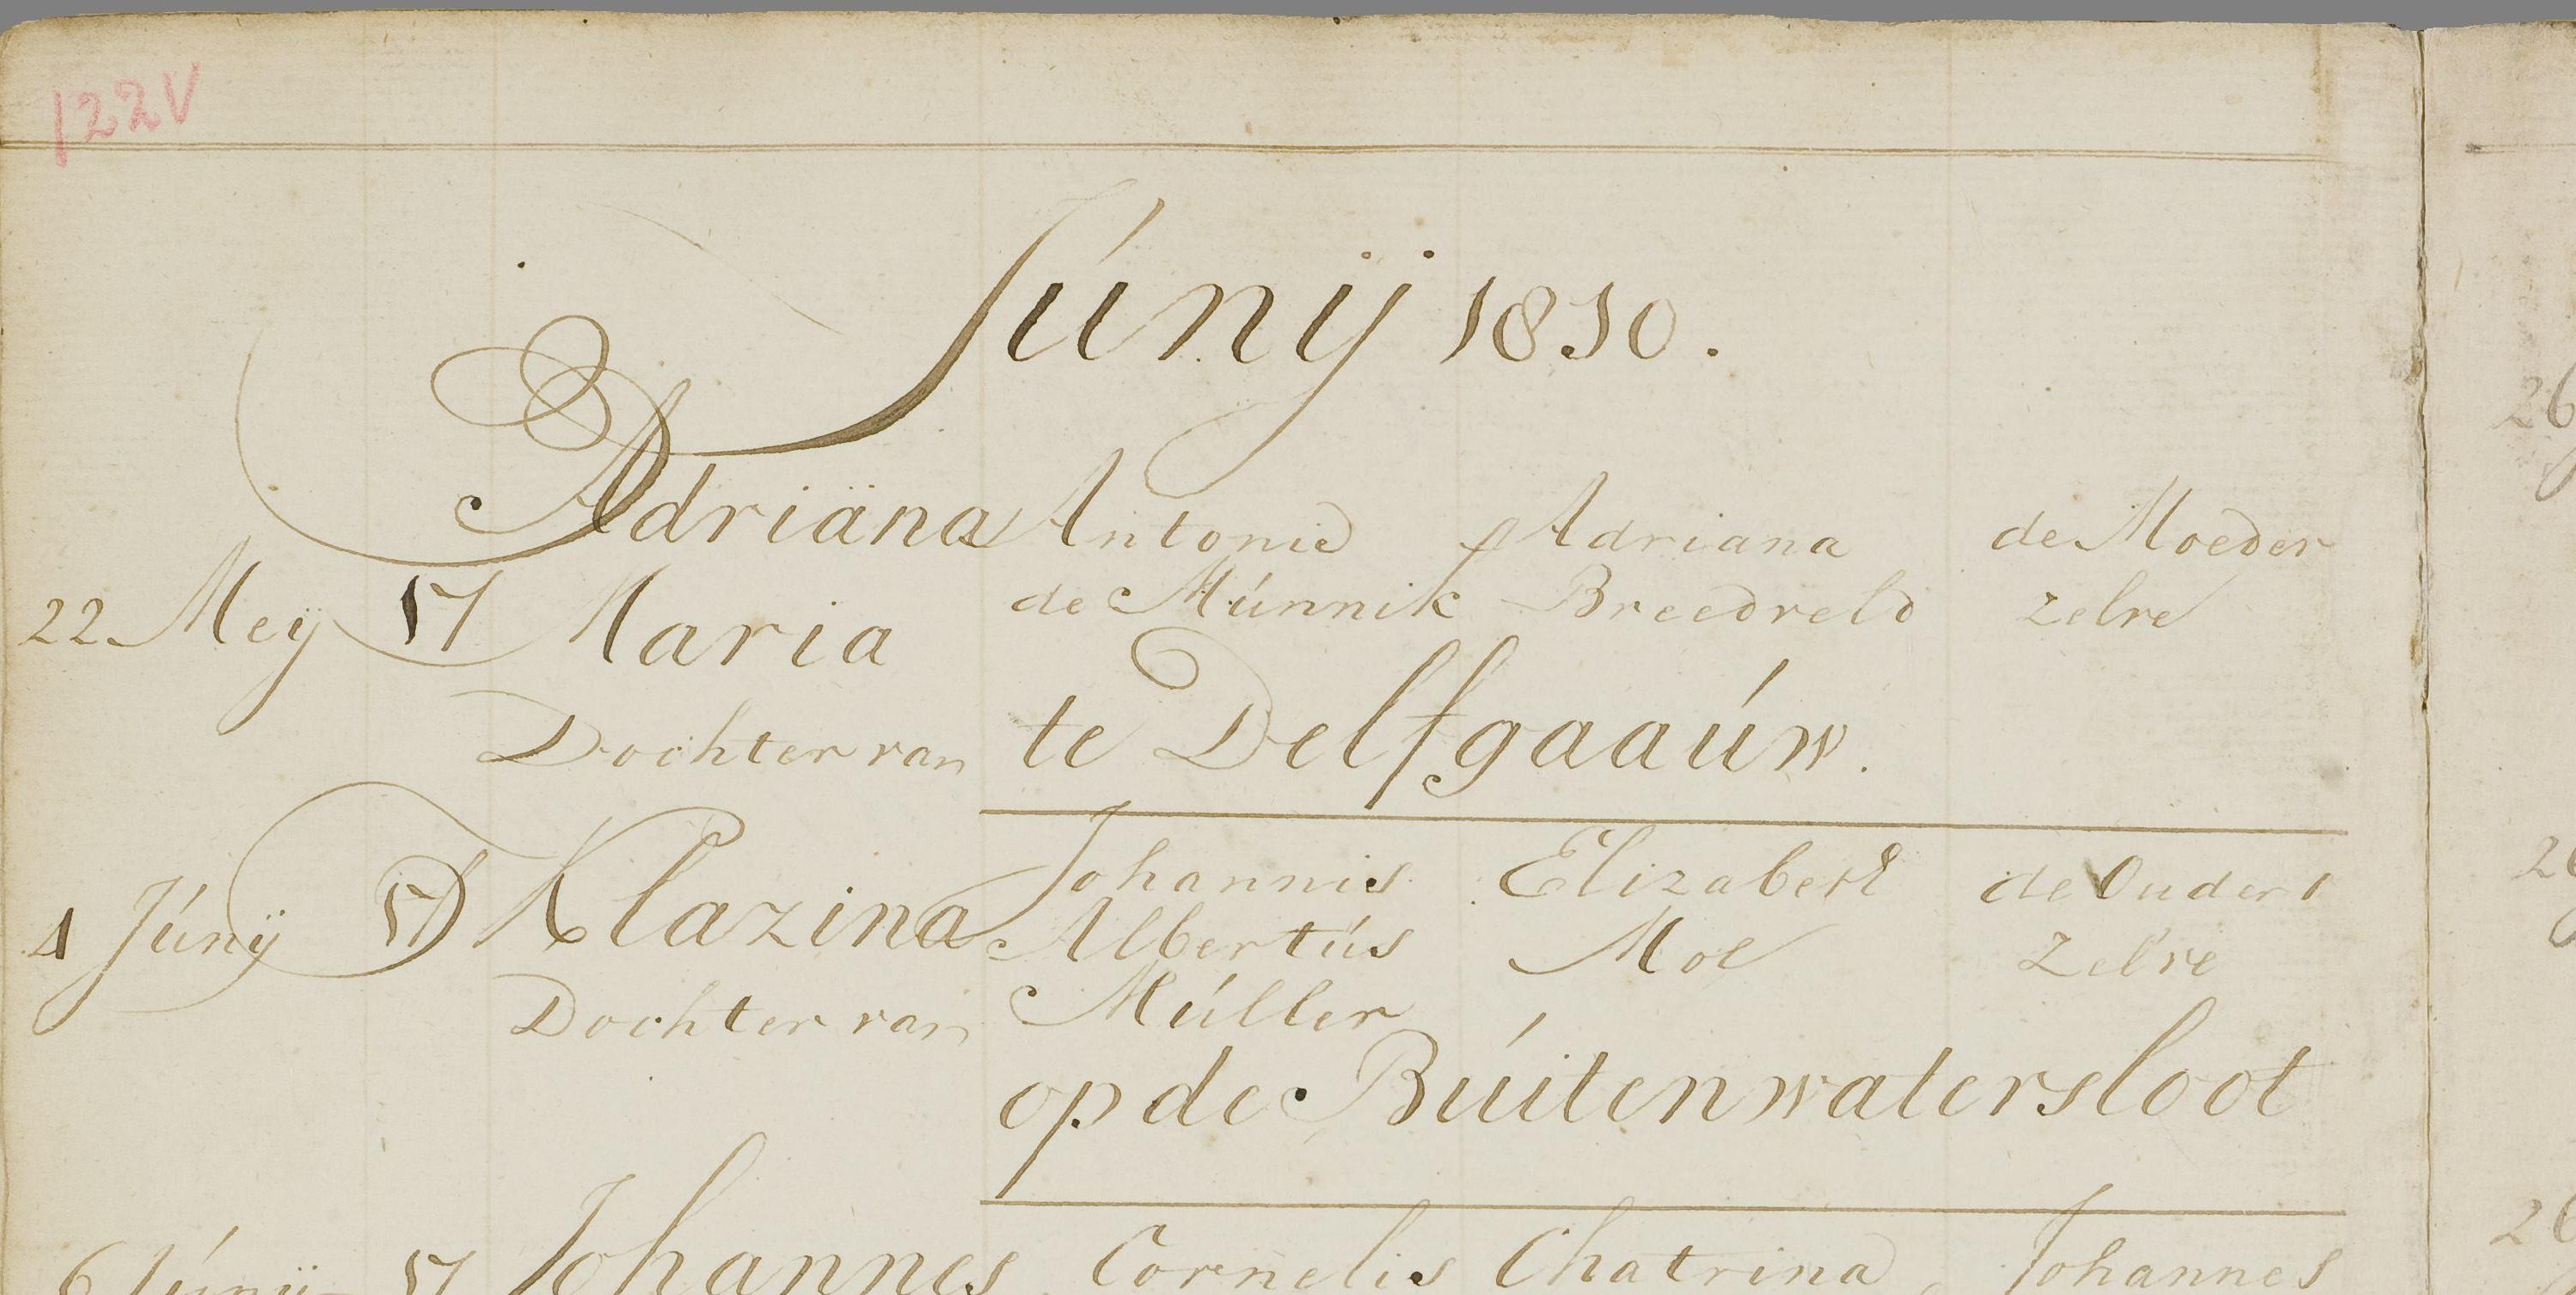 122V
Júnij 1810.
Adriana Antonie Adriana de Moeder
22 Meij 17 Maria de Múnnik Breedveld zelve
Dochter van te Delfgaaúw.
Klazina Johannis Elizabeth de Ouders
4 Júnij 17 Albertús Mol Zelve
Dochter van Múller
op de Búitenwatersloot
6 Júnij 17 Johannes Cornelis Chatrina Johannes
26
26